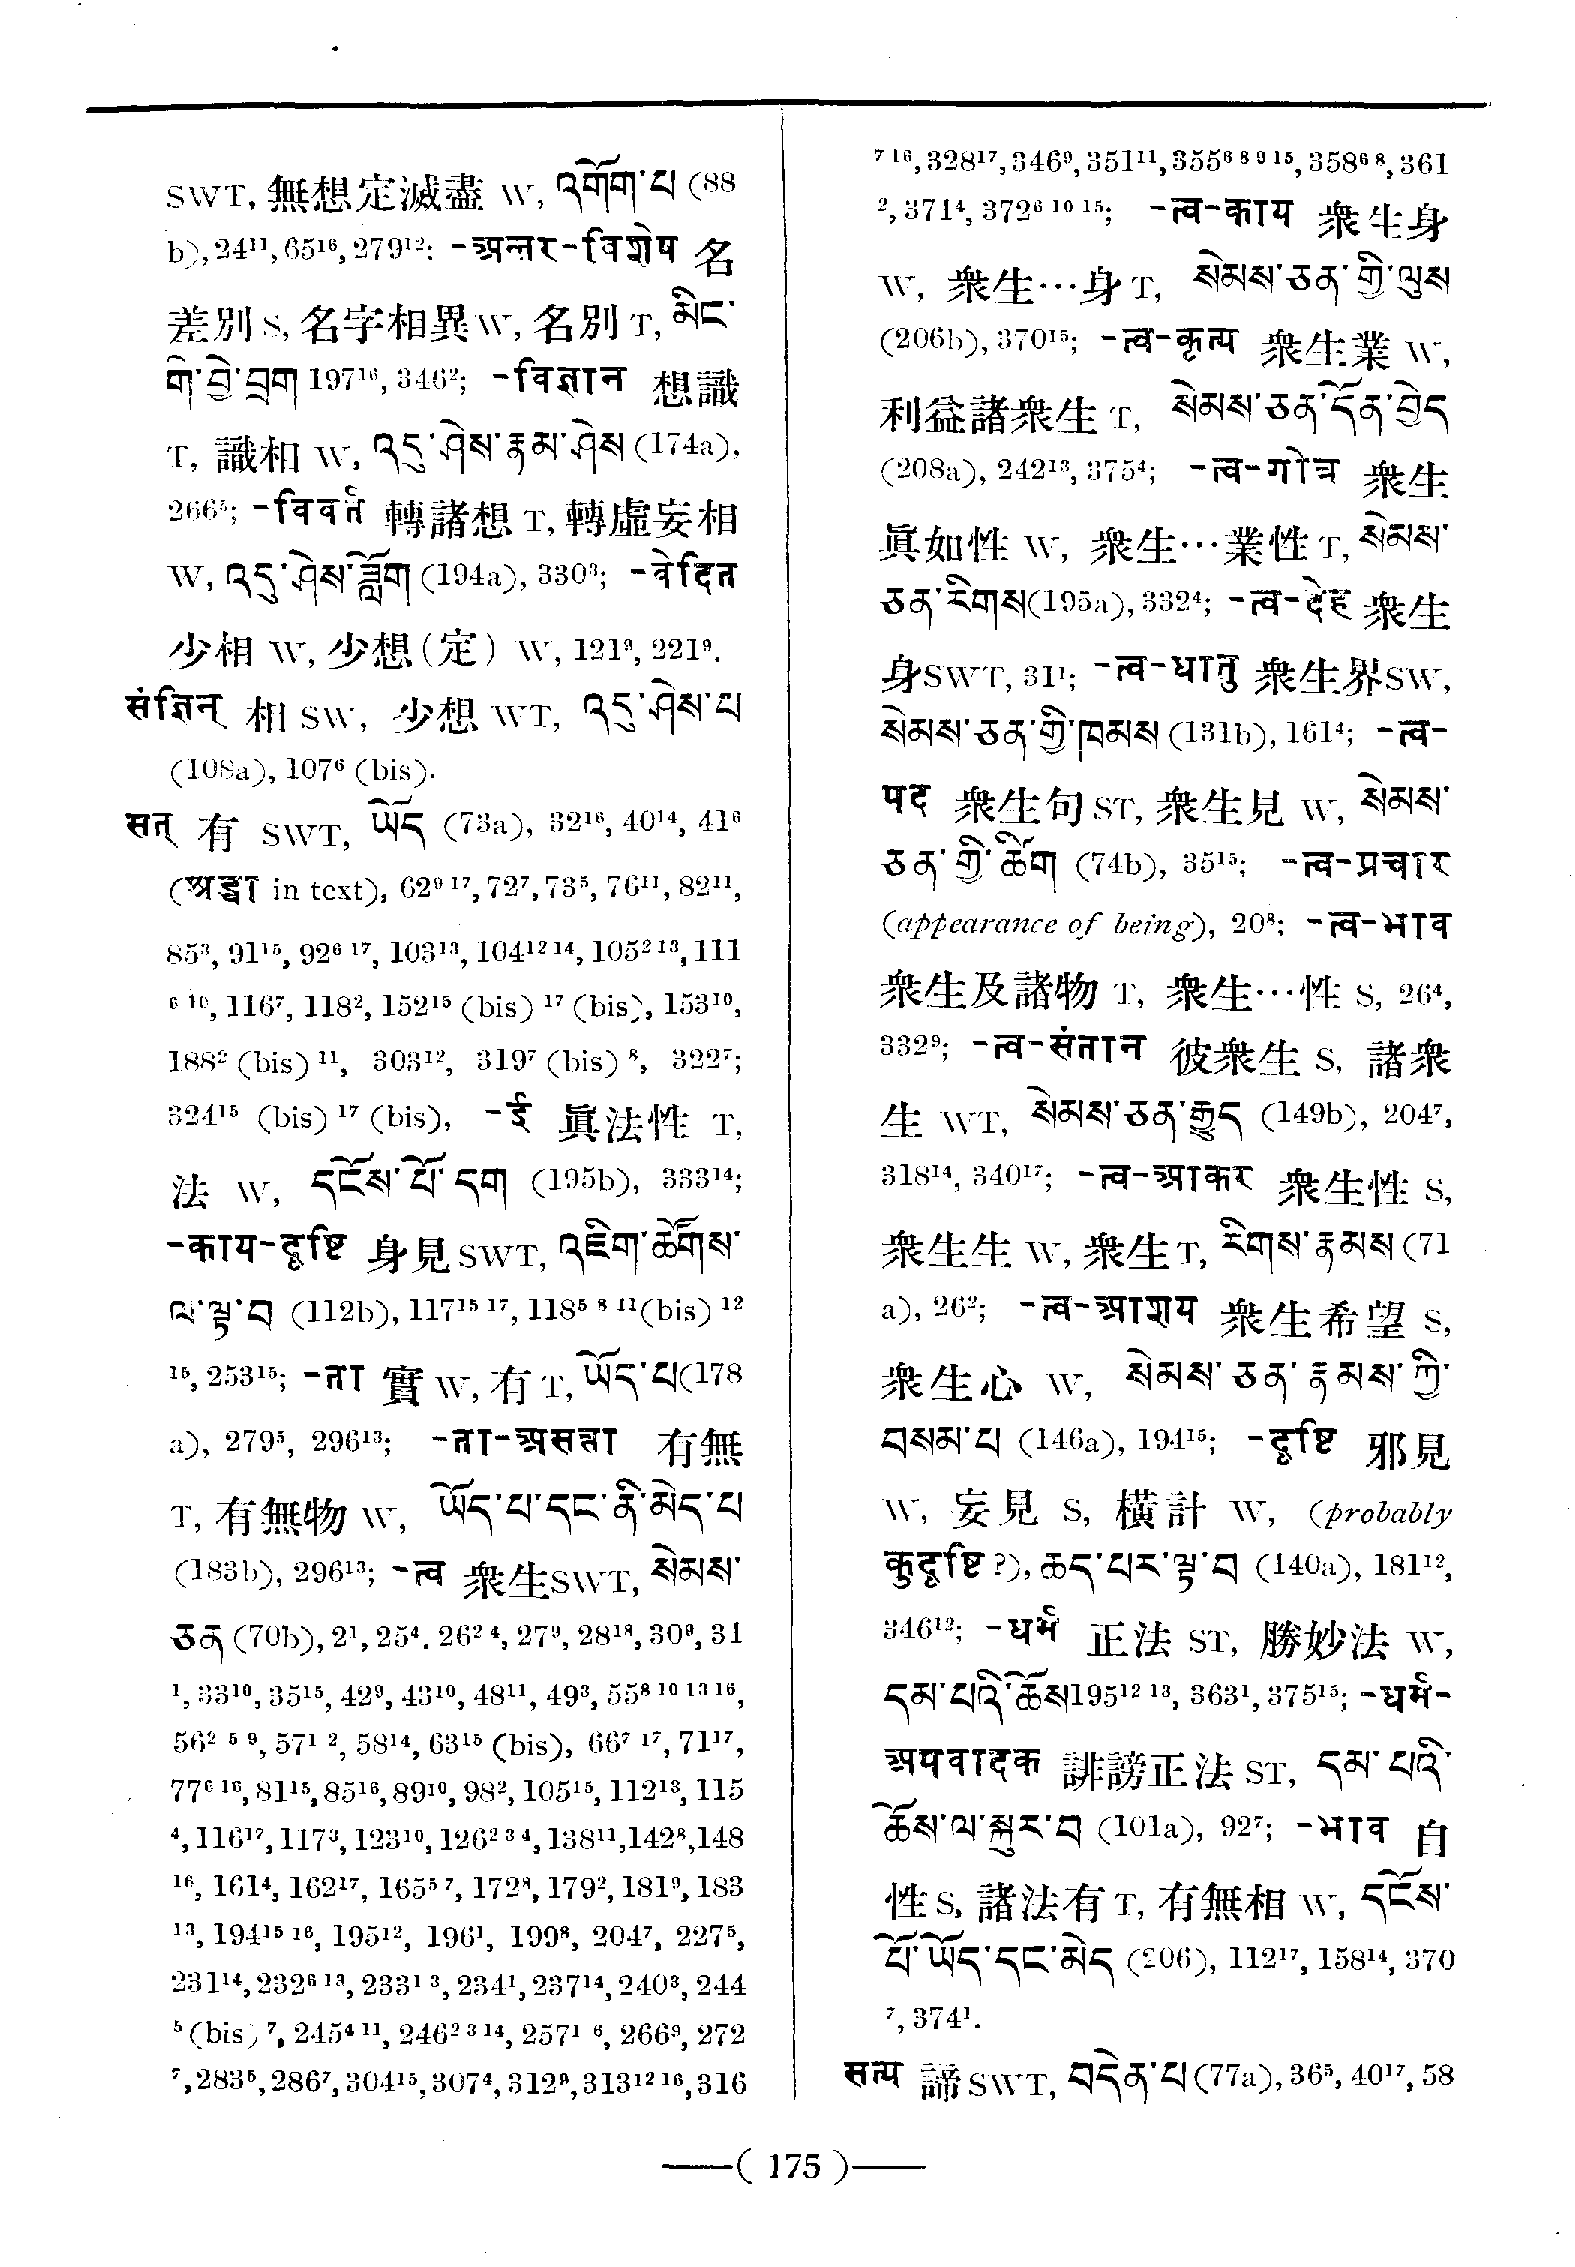 SWT, 無想定滅盡 W, འགོག་པ (88
b), 24¹¹, 65¹⁶, 279¹²; -अन्तर-विशेष 名
差別 S, 名字相異 W, 名別 T, མིང་
གི་བྱེ་བྲག 197¹⁶, 346²; -विज्ञान 想識
T, 識相 W, འདུ་ཤེས་རྣམ་ཤེས (174a),
266⁵; -विवर्त 轉諸想 T, 轉虛妄相
W, འདུ་ཤེས་ཟློག (194a), 330³; -वेदित
少相 W, 少想(定) W, 121⁹, 221⁹.
संज्ञिन् 相 SW, 少想 WT, འདུ་ཤེས་པ
(108a), 107⁶ (bis).
सत् 有 SWT, ཡོད (73a), 32¹⁶, 40¹⁴, 41⁶
(श्रद्धा in text), 62⁹ ¹⁷, 72⁷, 73⁵, 76¹¹, 82¹¹,
85³, 91¹⁵, 92⁶ ¹⁷, 103¹³, 104¹² ¹⁴, 105² ¹³, 111
⁶ ¹⁰, 116⁷, 118², 152¹⁵ (bis) ¹⁷ (bis), 153¹⁰,
188² (bis) ¹¹, 303¹², 319⁷ (bis) ⁸, 322⁷;
324¹⁵ (bis) ¹⁷ (bis), -ई 眞法性 T,
法 W, དངོས་པོ་དག (195b), 333¹⁴;
-काय-दृष्टि 身見 SWT, འཇིག་ཚོགས་
ལ་ལྟ་བ (112b), 117¹⁵ ¹⁷, 118⁵ ⁸ ¹¹(bis) ¹²
¹⁵, 253¹⁵; -ता 實 W, 有 T, ཡོད་པ(178
a), 279⁵, 296¹³; -ता-असत्ता 有無
T, 有無物 W, ཡོད་པ་དང་ནི་མེད་པ
(183b), 296¹³; -त्व 衆生SWT, སེམས་
ཅན (70b), 2¹, 25⁴, 26² ⁴, 27⁹, 28¹⁸, 30⁹, 31
¹, 33¹⁰, 35¹⁵, 42⁹, 43¹⁰, 48¹¹, 49³, 55⁸ ¹⁰ ¹³ ¹⁶,
56² ⁵ ⁹, 57¹ ², 58¹⁴, 63¹⁵ (bis), 66⁷ ¹⁷, 71¹⁷,
77⁶ ¹⁶, 81¹⁵, 85¹⁶, 89¹⁰, 98², 105¹⁵, 112¹³, 115
⁴, 116¹⁷, 117³, 123¹⁰, 126² ³ ⁴, 138¹¹, 142⁸, 148
¹⁶, 161⁴, 162¹⁷, 165⁵ ⁷, 172⁸, 179², 181⁹, 183
¹³, 194¹⁵ ¹⁶, 195¹², 196¹, 199⁸, 204⁷, 227⁵,
231¹⁴, 232⁶ ¹³, 233¹ ³, 234¹, 237¹⁴, 240³, 244
⁵ (bis) ⁷, 245⁴ ¹¹, 246² ³ ¹⁴, 257¹ ⁶, 266⁹, 272
⁷, 283⁵, 286⁷, 304¹⁵, 307⁴, 312⁸, 313¹² ¹⁶, 316
⁷ ¹⁶, 328¹⁷, 346⁹, 351¹¹, 355⁶ ⁸ ⁹ ¹⁵, 358⁶ ⁸, 361
², 371⁴, 372⁶ ¹⁰ ¹⁵; -त्व-काय 衆生身
W, 衆生…身 T, སེམས་ཅན་གྱི་ལུས
(206b), 370¹⁵; -त्व-कृत्य 衆生業 W,
利益諸衆生 T, སེམས་ཅན་དོན་བྱེད
(208a), 242¹³, 375⁴; -त्व-गोत्र 衆生
眞如性 W, 衆生…業性 T, སེམས་
ཅན་རིགས(195a), 332⁴; -त्व-देह 衆生
身SWT, 31¹; -त्व-धातु 衆生界SW,
སེམས་ཅན་གྱི་ཁམས (131b), 161⁴; -त्व-
पद 衆生句 ST, 衆生見 W, སེམས་
ཅན་གྱི་ཚིག (74b), 35¹⁵; -त्व-प्रचार
(appearance of being), 20⁸; -त्व-भाव
衆生及諸物 T, 衆生…性 S, 26⁴,
332⁹; -त्व-संतान 彼衆生 S, 諸衆
生 WT, སེམས་ཅན་རྒྱུད (149b), 204⁷,
318¹⁴, 340¹⁷; -त्व-आकर 衆生性 S,
衆生生 W, 衆生 T, རིགས་རྣམས (71
a), 26²; -त्व-आशय 衆生希望 S,
衆生心 W, སེམས་ཅན་རྣམས་ཀྱི་
བསམ་པ (146a), 194¹⁵; -दृष्टि 邪見
W, 妄見 S, 橫計 W, (probably
कुदृष्टि ?), ཆད་པར་ལྟ་བ (140a), 181¹²,
346¹²; -धर्म 正法 ST, 勝妙法 W,
དམ་པའི་ཆོས195¹² ¹³, 363¹, 375¹⁵; -धर्म-
अपवादक 誹謗正法 ST, དམ་པའི་
ཆོས་ལ་སྐུར་བ (101a), 92⁷; -भाव 自
性 S, 諸法有 T, 有無相 W, དངོས་
པོ་ཡོད་དང་མེད (206), 112¹⁷, 158¹⁴, 370
⁷, 374¹.
सत्य 諦 SWT, བདེན་པ (77a), 36⁵, 40¹⁷, 58
—( 175 )—